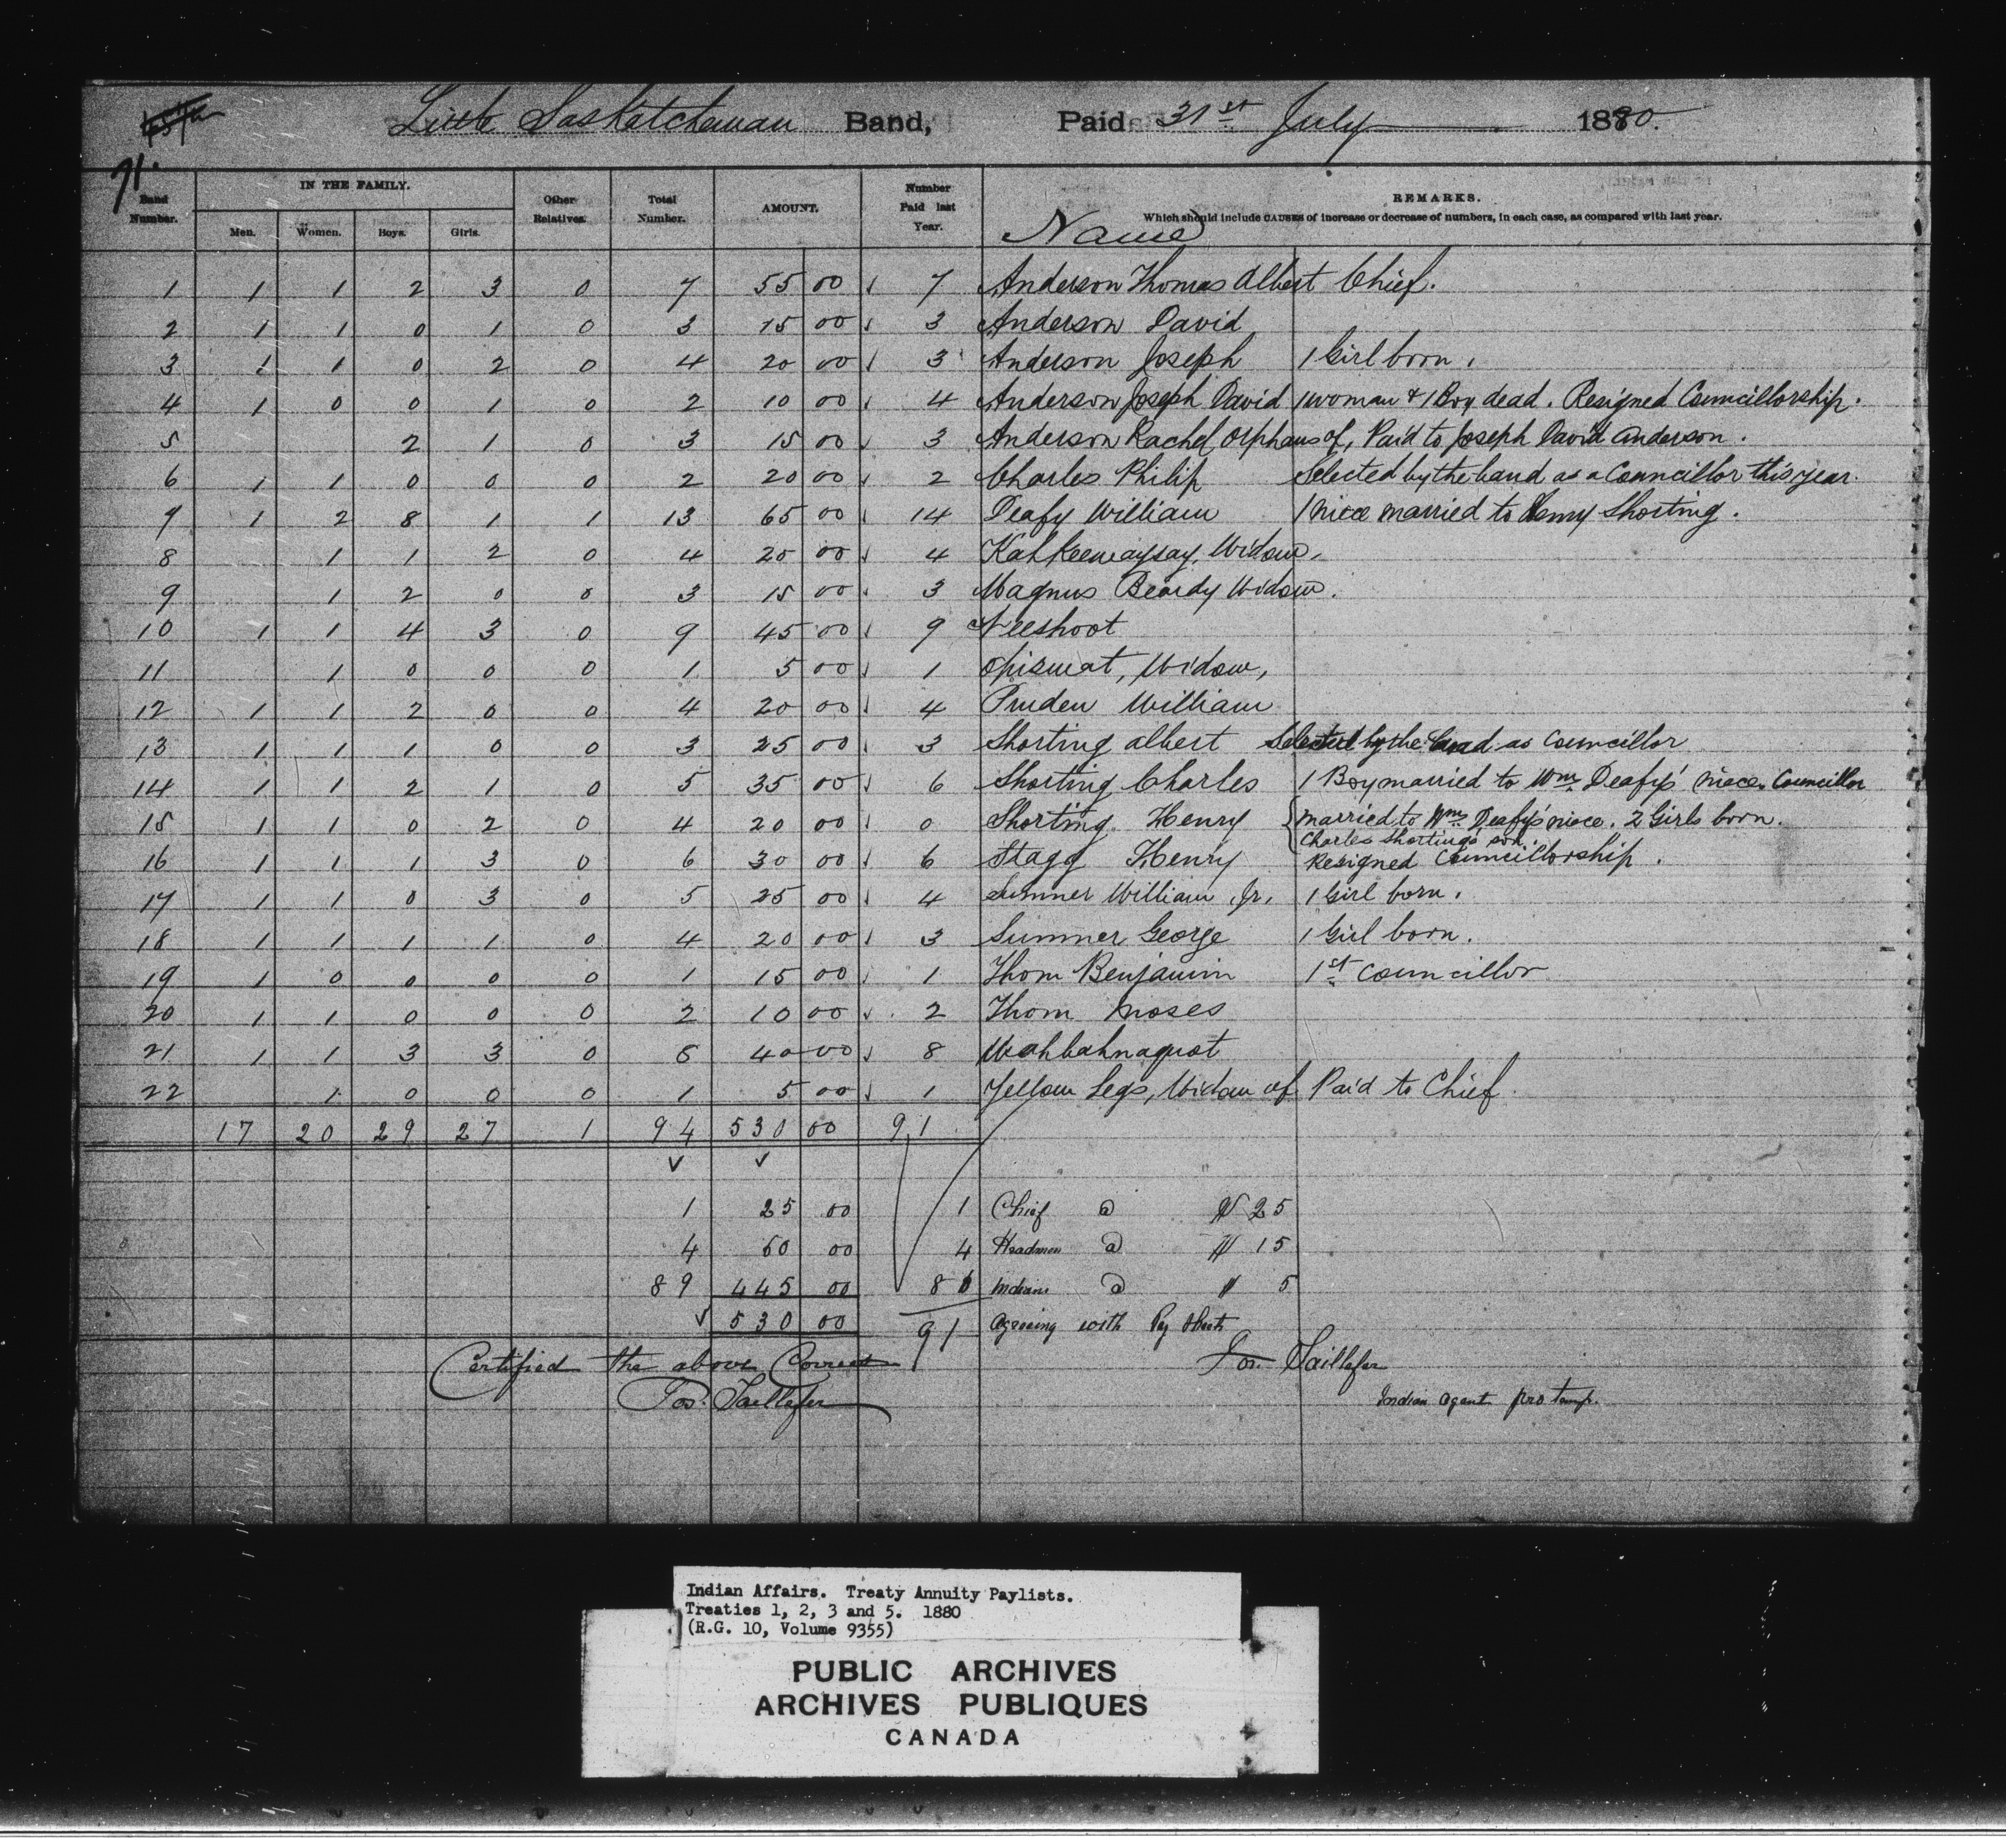 Little Saskatchewan Band, Paid 31st July 1880.
71.
Band Number. IN THE FAMILY. Men. Women. Boys. Girls. Other Relatives. Total Number. AMOUNT. Number Paid last Year. Name REMARKS.
Which should include CAUSES of increase or decrease of numbers, in each case, as compared with last year.
1 1 1 2 3 0 7 55 00 7 Anderson Thomas Albert Chief.
2 1 1 0 1 0 3 15 00 3 Anderson David
3 1 1 0 2 0 4 20 00 3 Anderson Joseph 1 Girl born.
4 1 0 0 1 0 2 10 00 4 Anderson Joseph David 1 woman & 1 Boy dead. Resigned Councillorship.
5 2 1 0 3 15 00 3 Anderson Rachel Orphans of, Paid to Joseph David Anderson.
6 1 1 0 0 0 2 20 00 2 Charles Philip Selected by the band as a Councillor this year.
7 1 2 8 1 1 13 65 00 14 Deafy William 1 niece married to Henry Shorting.
8 1 1 2 0 4 20 00 4 Kahkeewaysay, Widow,
9 1 2 0 0 3 15 00 3 Magnus Beardy Widow.
10 1 1 4 3 0 9 45 00 9 Neeshoot
11 1 0 0 0 1 5 00 1 Opiswat, Widow,
12 1 1 2 0 0 4 20 00 4 Pruden William
13 1 1 1 0 0 3 25 00 3 Shorting Albert Selected by the band as Councillor
14 1 1 2 1 0 5 35 00 6 Shorting Charles 1 Boy married to Wm Deafy's niece. Councillor
15 1 1 0 2 0 4 20 00 0 Shorting Henry married to Wm Deafy's niece. 2 Girls born.
Charles Shorting's son.
16 1 1 1 3 0 6 30 00 6 Stagg Henry Resigned Councillorship.
17 1 1 0 3 0 5 25 00 4 Sumner William Jr. 1 Girl born.
18 1 1 1 1 0 4 20 00 3 Sumner George 1 Girl born.
19 1 0 0 0 0 1 15 00 1 Thom Benjamin 1st Councillor
20 1 1 0 0 0 2 10 00 2 Thom Moses
21 1 1 3 3 0 8 40 00 8 Wahbahnaquot
22 1 0 0 0 1 5 00 1 Yellow Legs, Widow of Paid to Chief
17 20 29 27 1 94 530 00 91
1 25 00 1 Chief @ $ 25
4 60 00 4 Headmen @ $ 15
89 445 00 86 Indians @ $ 5
530 00 91 Agreeing with Pay Sheets
Certified the above Correct Jos. Taillefer
Jos. Taillefer Indian Agent pro temp.
Indian Affairs. Treaty Annuity Paylists.
Treaties 1, 2, 3 and 5. 1880
(R.G. 10, Volume 9355)
PUBLIC ARCHIVES
ARCHIVES PUBLIQUES
CANADA